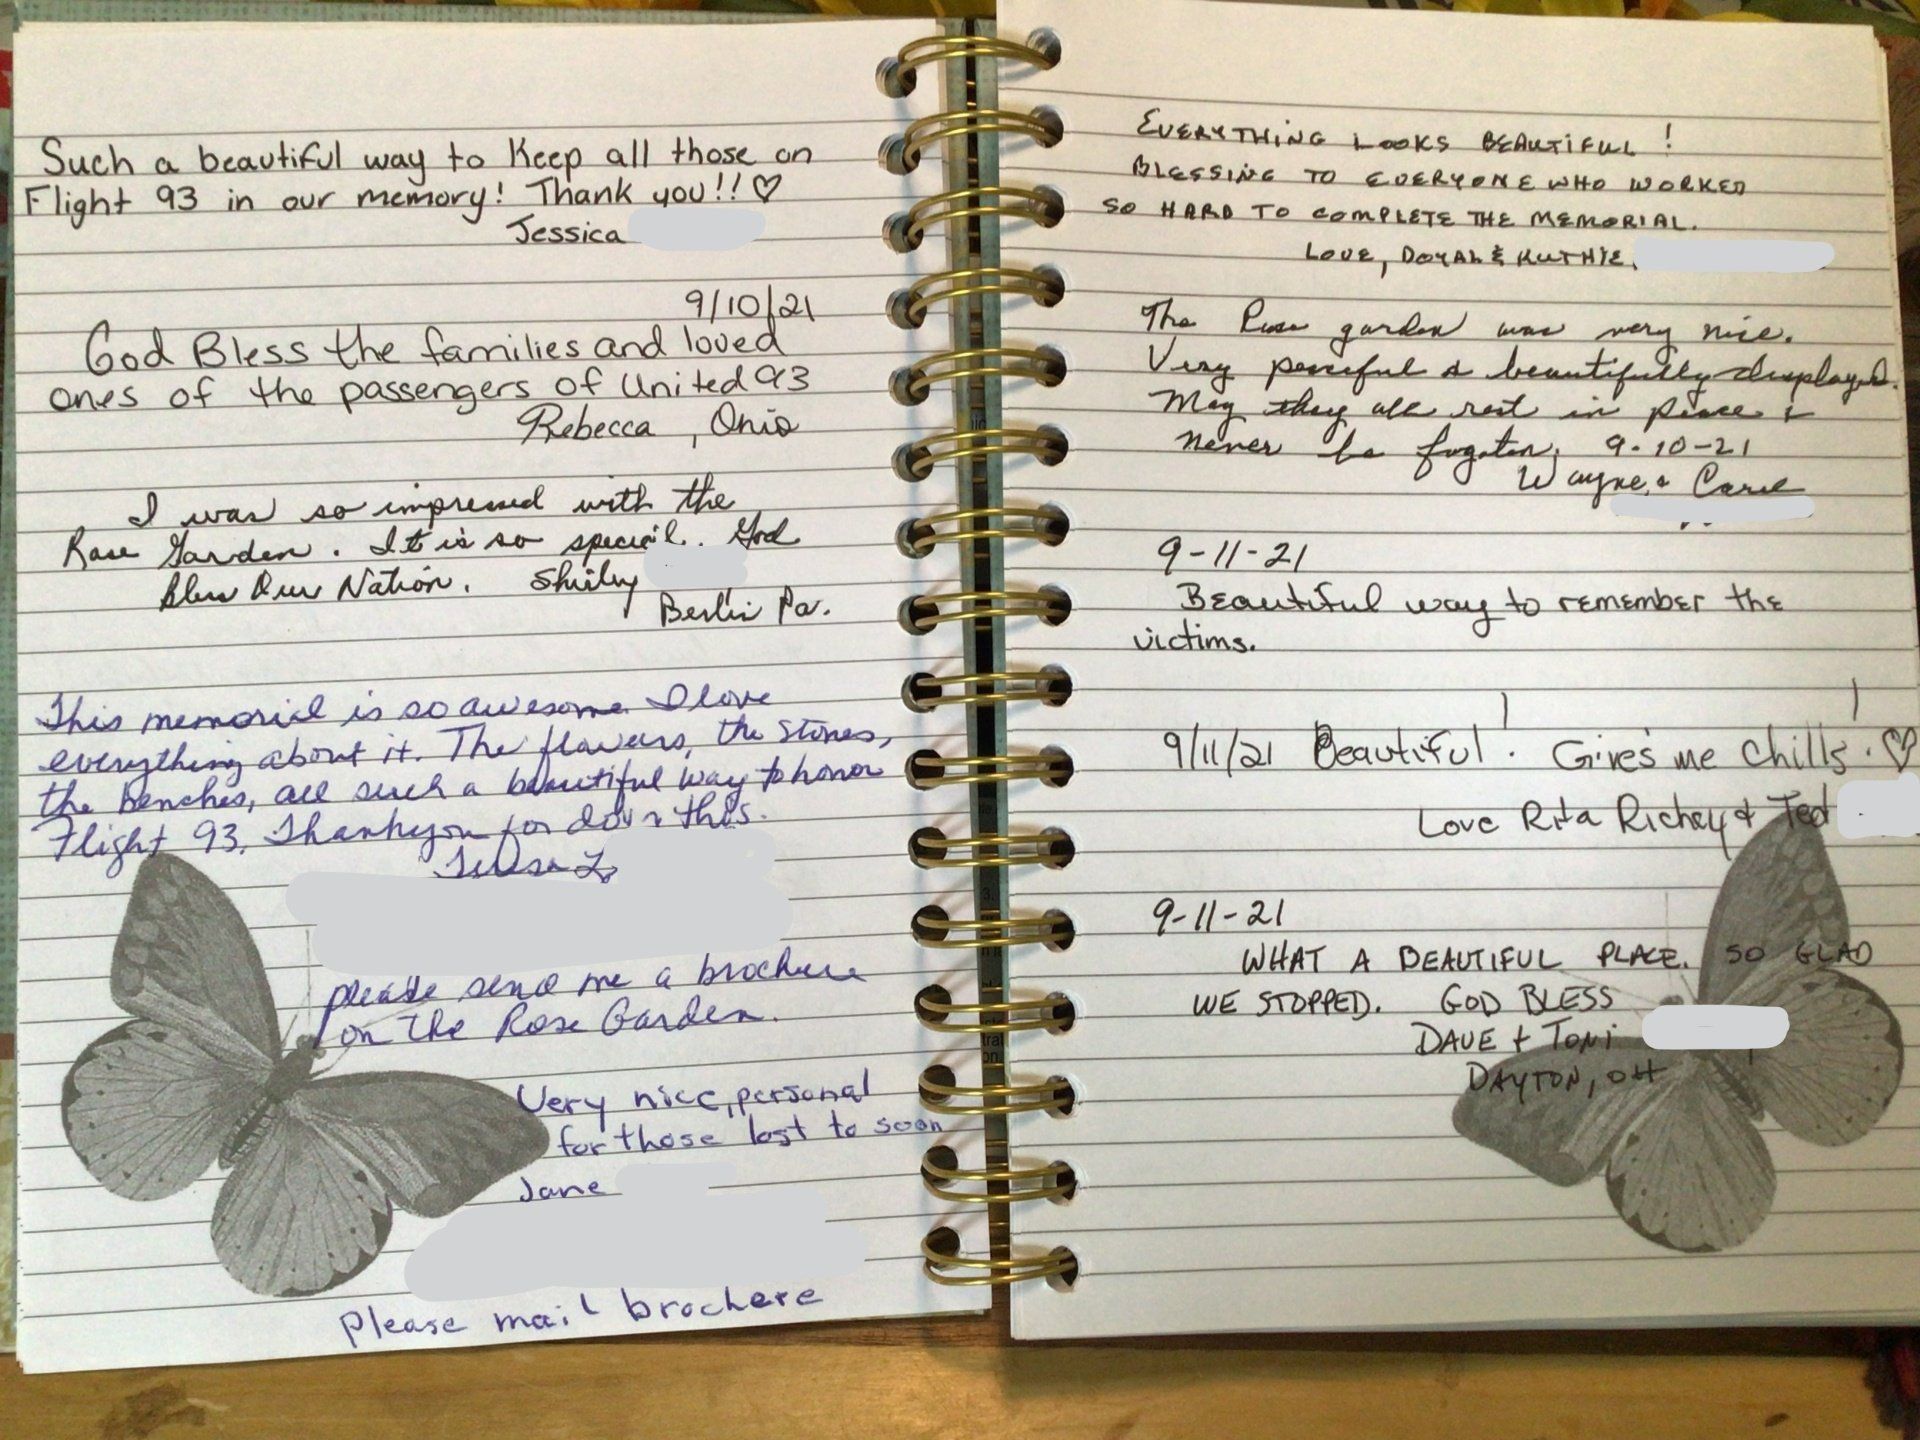 Such a beautiful way to Keep all those on
Flight 93 in our memory! Thank you!! ♡
Jessica
9/10/21
God Bless the families and loved
ones of the passengers of United 93
Rebecca , Ohio
I was so impressed with the
Rose Garden. It is so special. God
Bless Our Nation. Shirley
Berlin Pa.
This memorial is so awesome I love
everything about it. The flowers, the stones,
the benches, all such a beautiful way to honor
Flight 93. Thankyou for doin this.
Teresa L
please send me a brochure
on the Rose Garden.
Very nice, personal
for those lost to soon
Jane
Please mail brochere
EVERYTHING LOOKS BEAUTIFUL!
BLESSING TO EVERYONE WHO WORKED
SO HARD TO COMPLETE THE MEMORIAL.
LOVE, DOYAL & RUTHIE
The Rose garden was very nice.
Very peaceful & beautifully displayed.
May they all rest in peace &
never be forgoten. 9-10-21
Wayne & Carol
9-11-21
Beautiful way to remember the
victims.
9/11/21 Beautiful! Gives me chills! ♡
Love Rita Richey & Ted
9-11-21
WHAT A BEAUTIFUL PLACE. SO GLAD
WE STOPPED. GOD BLESS
DAVE + TONI
DAYTON, OH